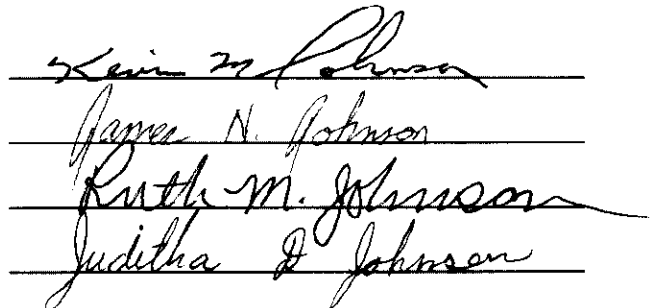 Kevin M Johnson
James N. Johnson
Ruth M. Johnson
Juditha D Johnson